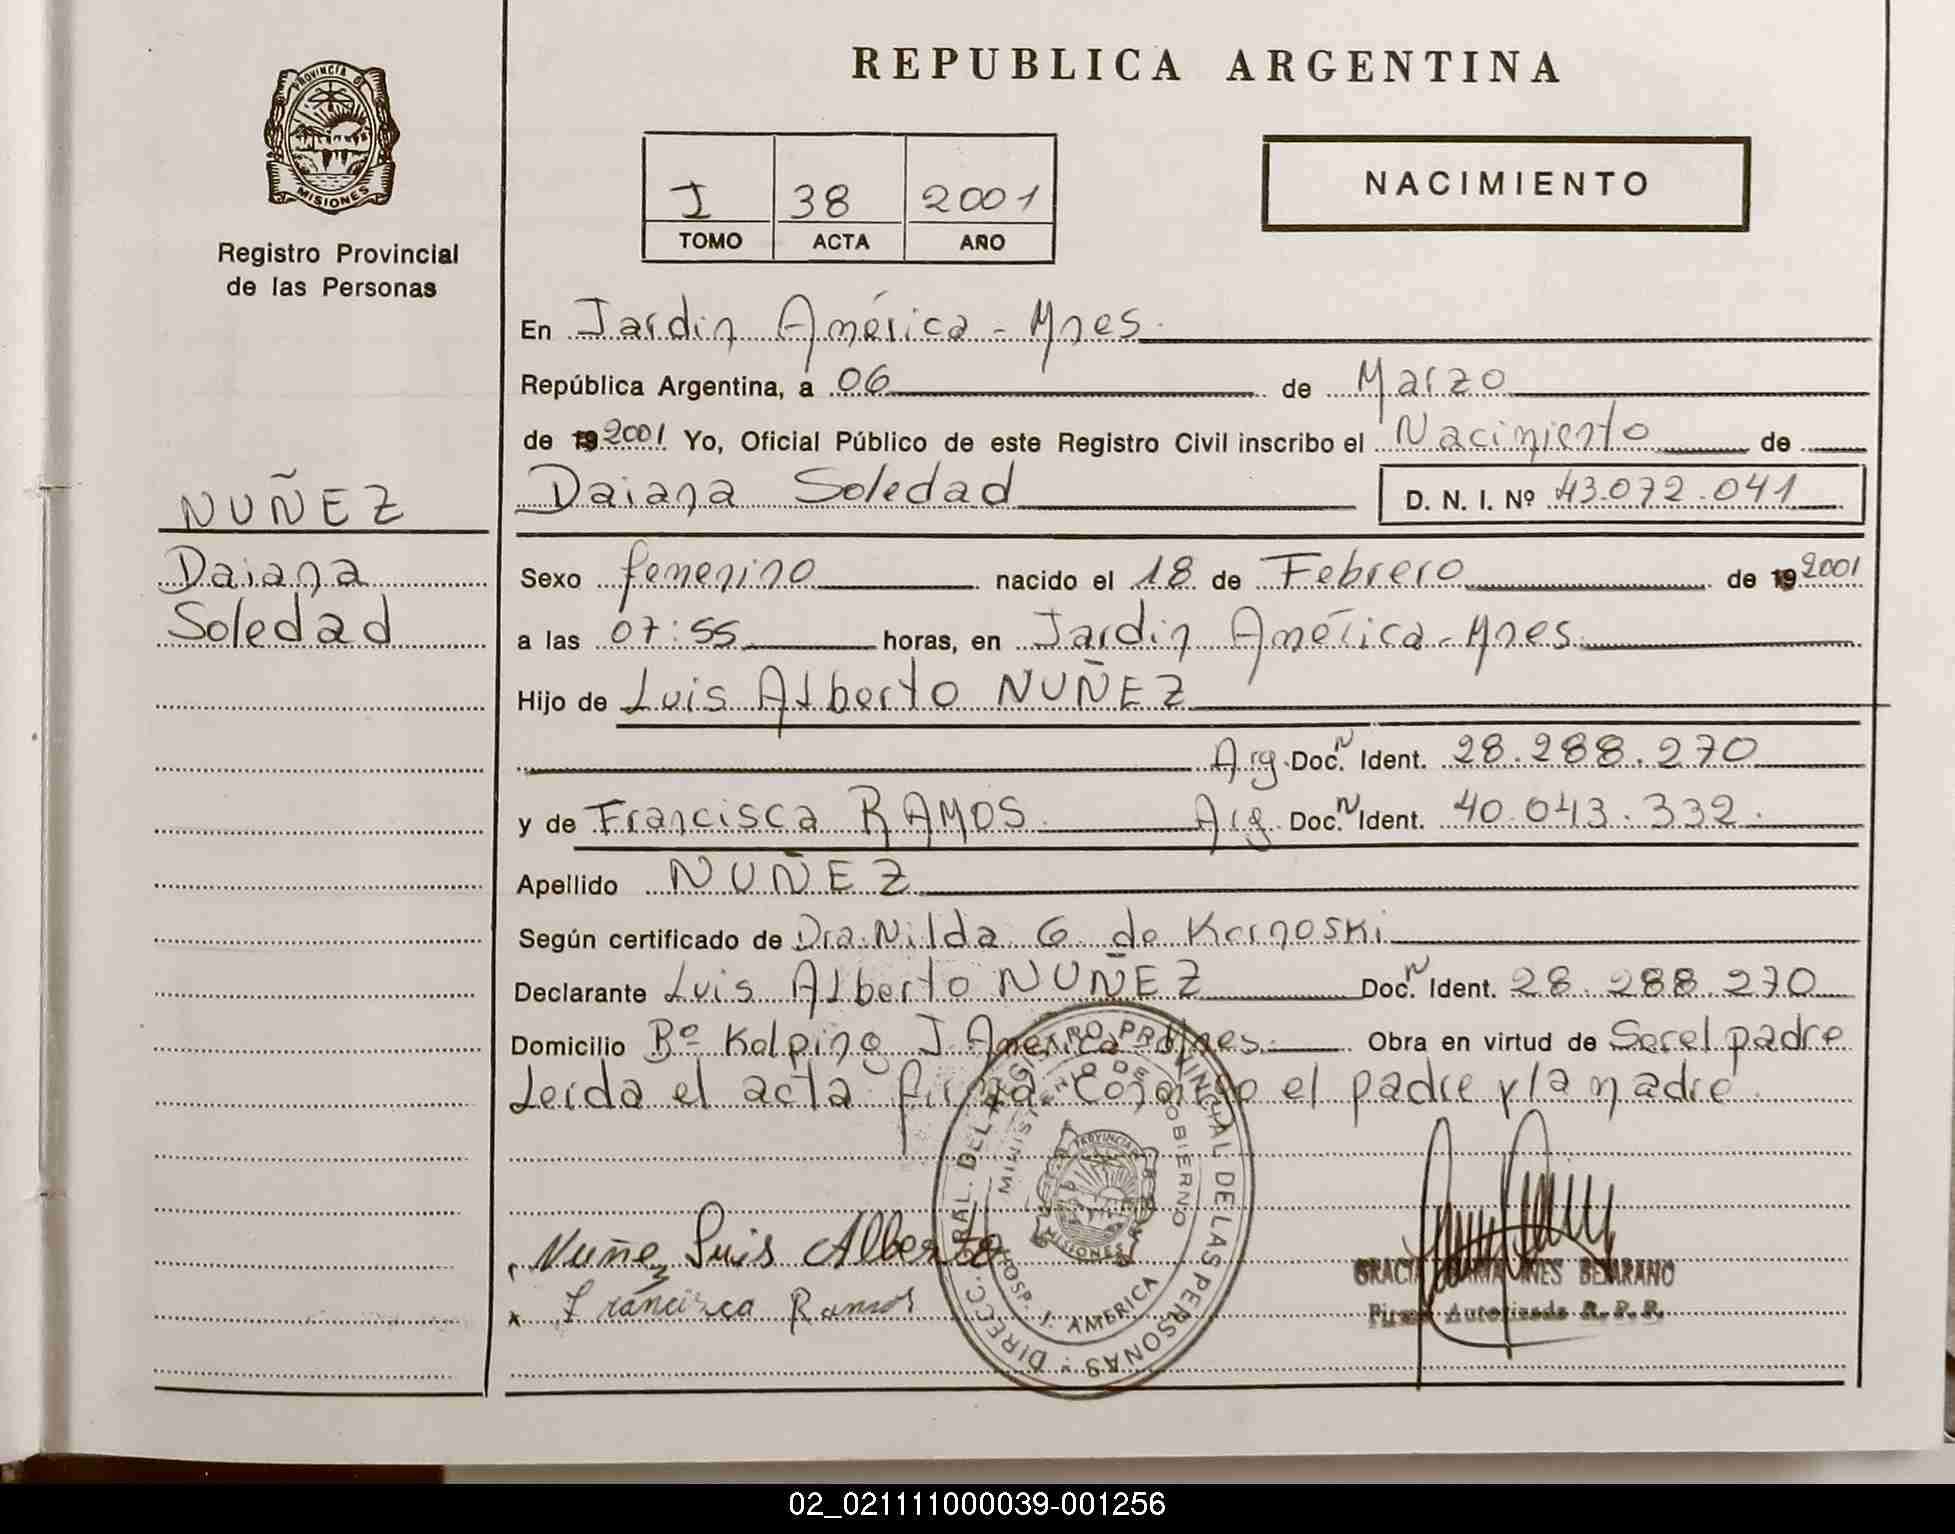 REPUBLICA ARGENTINA
PROVINCIA DE MISIONES
Registro Provincial
de las Personas
I 38 2001
TOMO ACTA AÑO
NACIMIENTO
En Jardin América - Mnes.
República Argentina, a 06 de Marzo
de 19 2001 Yo, Oficial Público de este Registro Civil inscribo el Nacimiento de
Daiana Soledad D. N. I. Nº 43.072.041
NUÑEZ
Daiana
Soledad
Sexo femenino nacido el 18 de Febrero de 19 2001
a las 07:55 horas, en Jardin América - Mnes.
Hijo de Luis Alberto NUÑEZ
Arg. Doc. N Ident. 28.288.270
y de Francisca RAMOS Arg. Doc. N Ident. 40.043.332.
Apellido NUÑEZ
Según certificado de Dra. Nilda G. de Kornoski
Declarante Luis Alberto NUÑEZ Doc. N Ident. 28.288.270
Domicilio Bº Kolping J. América - Mnes. Obra en virtud de Ser el padre
Leida el acta firma conmigo el padre y la madre.
DIRECC. GRAL. DEL REGISTRO PROVINCIAL DE LAS PERSONAS
MINISTERIO DE GOBIERNO
PROVINCIA DE MISIONES
HOSP. J. AMERICA
Nuñez Luis Alberto
x Francisca Ramos
INES BEJARANO
Firma Autorizada R. P. P.
02_021111000039-001256